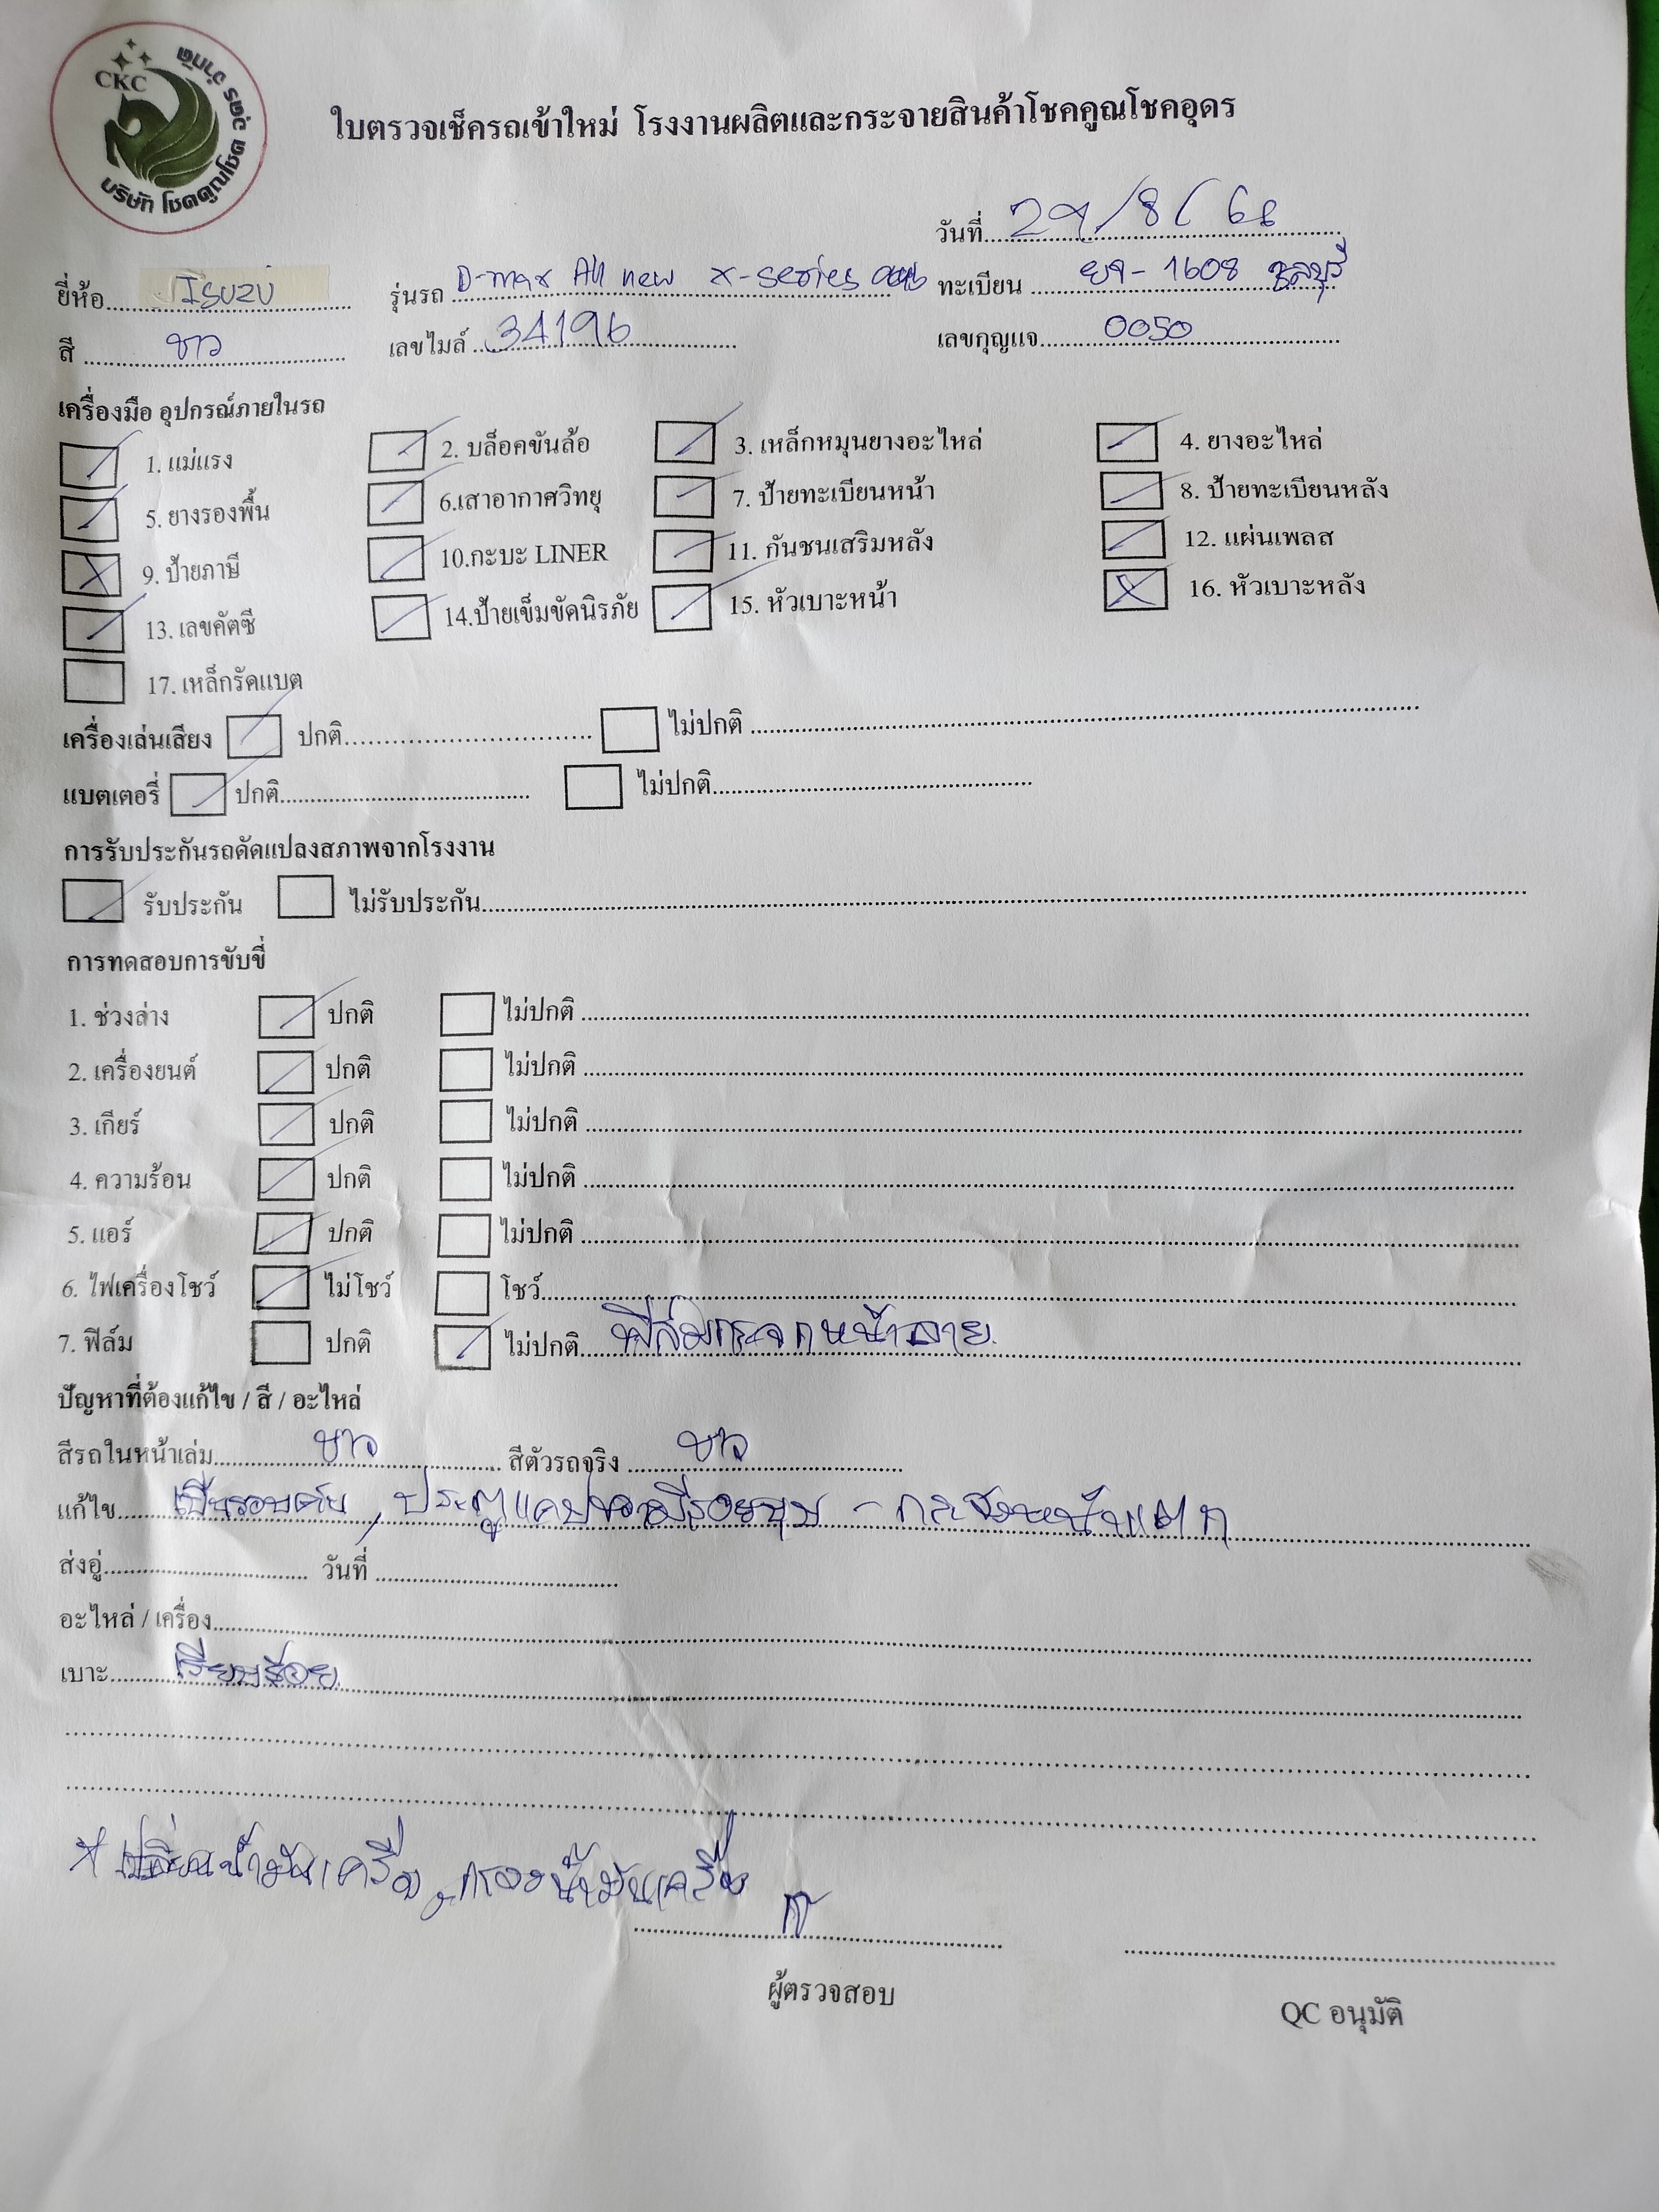 CKC
บริษัท โชคคูณโชค อุดร จำกัด
ใบตรวจเช็ครถเข้าใหม่ โรงงานผลิตและกระจายสินค้าโชคคูณโชคอุดร
วันที่ 29/8/68
ยี่ห้อ Isuzu รุ่นรถ D-max All new x-series ทะเบียน 1608 ชลบุรี
สี ขาว เลขไมล์ 34196 เลขกุญแจ 0050
เครื่องมือ อุปกรณ์ภายในรถ
1. แม่แรง 2. บล็อคขันล้อ 3. เหล็กหมุนยางอะไหล่ 4. ยางอะไหล่
5. ยางรองพื้น 6.เสาอากาศวิทยุ 7. ป้ายทะเบียนหน้า 8. ป้ายทะเบียนหลัง
9. ป้ายภาษี 10.กะบะ LINER 11. กันชนเสริมหลัง 12. แผ่นเพลส
13. เลขคัตซี 14.ป้ายเข็มขัดนิรภัย 15. หัวเบาะหน้า 16. หัวเบาะหลัง
17. เหล็กรัดแบต
เครื่องเล่นเสียง ปกติ ไม่ปกติ
แบตเตอรี่ ปกติ ไม่ปกติ
การรับประกันรถดัดแปลงสภาพจากโรงงาน
รับประกัน ไม่รับประกัน
การทดสอบการขับขี่
1. ช่วงล่าง ปกติ ไม่ปกติ
2. เครื่องยนต์ ปกติ ไม่ปกติ
3. เกียร์ ปกติ ไม่ปกติ
4. ความร้อน ปกติ ไม่ปกติ
5. แอร์ ปกติ ไม่ปกติ
6. ไฟเครื่องโชว์ ไม่โชว์ โชว์
7. ฟิล์ม ปกติ ไม่ปกติ ฟิล์มกระจกหน้าลาย
ปัญหาที่ต้องแก้ไข / สี / อะไหล่
สีรถในหน้าเล่ม ขาว สีตัวรถจริง ขาว
แก้ไข รอบคัน, ประตูแคปขวามีรอยบุบ - หน้าแตก
ส่งอู่ วันที่
อะไหล่ / เครื่อง
เบาะ เรียบร้อย
* เปลี่ยนน้ำมันเครื่อง, กรองน้ำมันเครื่อง
ผู้ตรวจสอบ
QC อนุมัติ